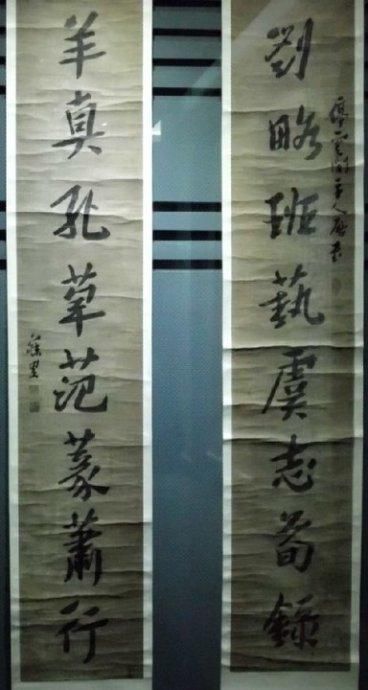 劉略班藝虞志荀錄
羊真孔草范篆蕭行